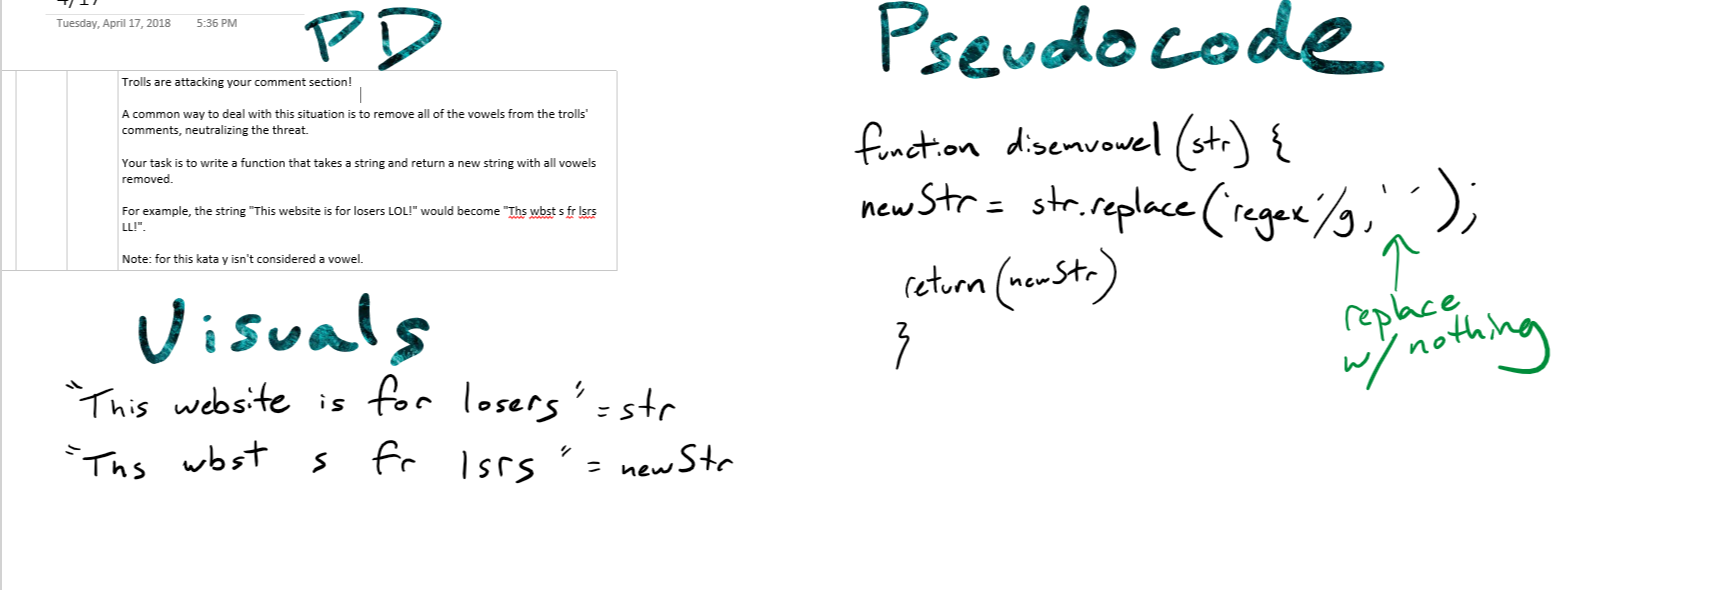 4/17
Tuesday, April 17, 2018 5:36 PM
PD
Trolls are attacking your comment section!
A common way to deal with this situation is to remove all of the vowels from the trolls'
comments, neutralizing the threat.
Your task is to write a function that takes a string and return a new string with all vowels
removed.
For example, the string "This website is for losers LOL!" would become "Ths wbst s fr lsrs
LL!".
Note: for this kata y isn't considered a vowel.
Visuals
"This website is for losers" = str
"Ths wbst s fr lsrs" = newStr
Pseudocode
function disemvowel (str) {
newStr = str.replace('regex'/g, ' ');
return (newStr)
}
replace
w/ nothing